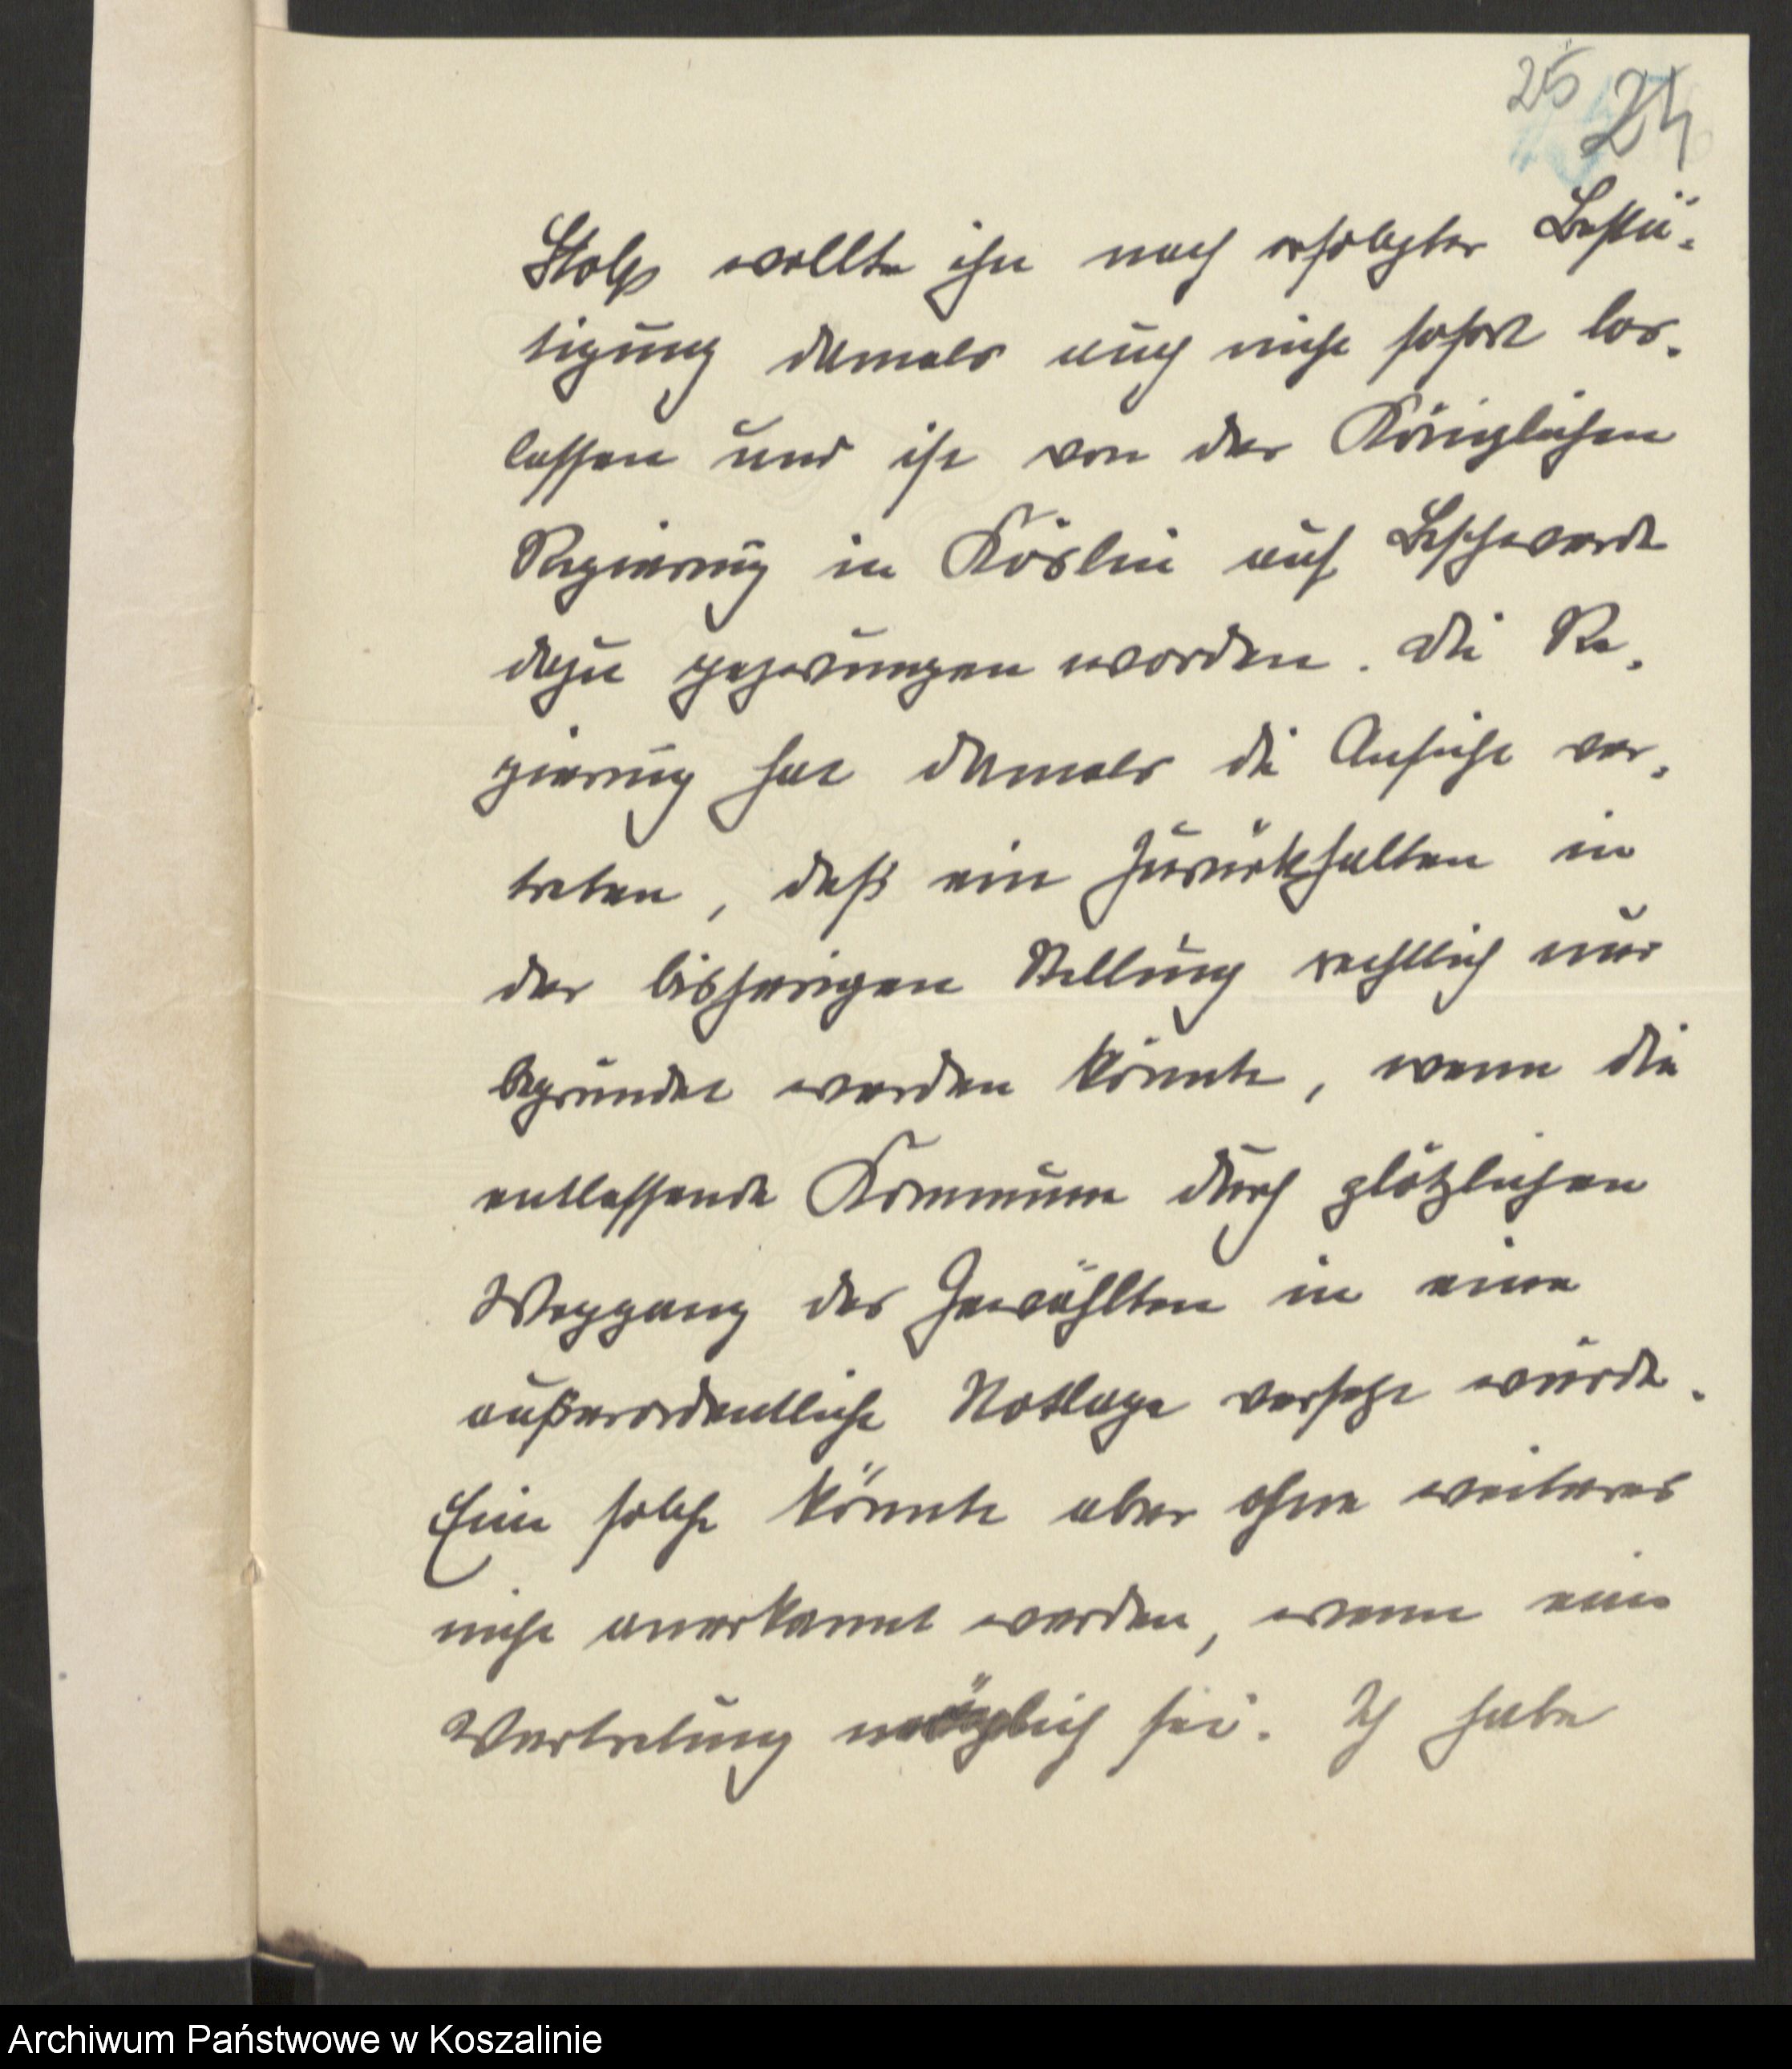 25 24
Stolp wollte ihn nach erfolgter Bestä-
tigung damals auch nicht sofort los-
lassen und ist von der Königlichen
Regierung in Köslin auf Beschwerde
dazu gezwungen worden. Die Re-
gierung hat damals die Ansicht ver-
treten, daß ein Zurückhalten in
der bisherigen Stellung rechtlich nur
begründet werden könnte, wenn die
entlassende Kommune durch plötzlichen
Weggang des Gewählten in eine
außerordentliche Notlage versetzt würde.
Eine solche könnte aber ohne weiteres
nicht anerkannt werden, wenn eine
Vertretung möglich sei. Ich habe
Archiwum Państwowe w Koszalinie